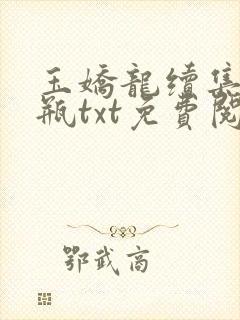 玉嬌龍續集
瓶txt免費閱
鄂武商